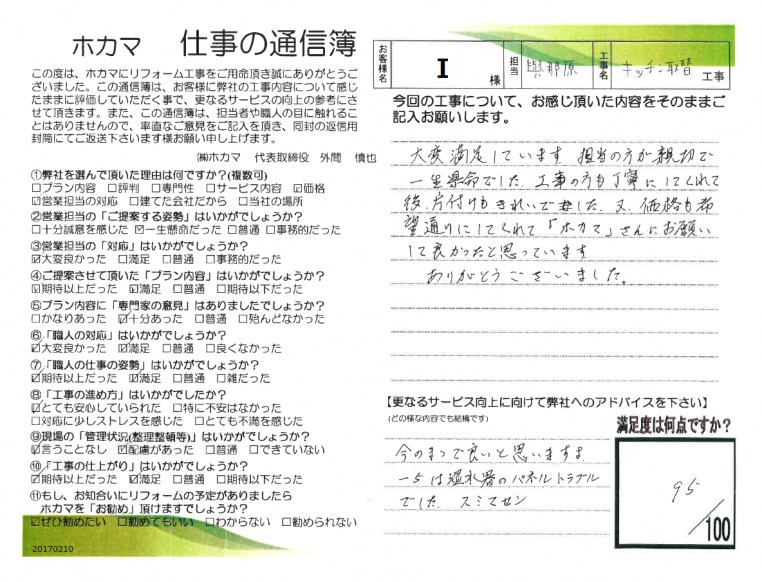 ホカマ 仕事の通信簿
この度は、ホカマにリフォーム工事をご用命頂き誠にありがとうご
ざいました。この通信簿は、お客様に弊社の工事内容について感じ
たままに評価していただく事で、更なるサービスの向上の参考にさ
せて頂きます。また、この通信簿は、担当者や職人の目に触れるこ
とはありませんので、率直なご意見をご記入を頂き、同封の返信用
封筒にてご返送下さいます様お願い申し上げます。
㈱ホカマ 代表取締役 外間 慎也
①弊社を選んで頂いた理由は何ですか?(複数可)
□プラン内容 □評判 □専門性 □サービス内容 ☑価格
☑営業担当の対応 □建てた会社だから □当社の場所
②営業担当の「ご提案する姿勢」はいかがでしょうか?
□十分誠意を感じた ☑一生懸命だった □普通 □事務的だった
③営業担当の「対応」はいかがでしょうか?
☑大変良かった □満足 □普通 □事務的だった
④ご提案させて頂いた「プラン内容」はいかがでしょうか?
☑期待以上だった ☑満足 □普通 □期待以下だった
⑤プラン内容に「専門家の意見」はありましたでしょうか?
□かなりあった ☑十分あった □普通 □殆んどなかった
⑥「職人の対応」はいかがでしょうか?
☑大変良かった ☑満足 □普通 □良くなかった
⑦「職人の仕事の姿勢」はいかがでしょうか?
☑期待以上だった ☑満足 □普通 □雑だった
⑧「工事の進め方」はいかがでしたか?
☑とても安心していられた □特に不安はなかった
□対応に少しストレスを感じた □とても不満を感じた
⑨現場の「管理状況(整理整頓等)」はいかがでしょうか?
☑言うことなし ☑配慮があった □普通 □できていない
⑩「工事の仕上がり」はいかがでしょうか?
☑期待以上だった ☑満足 □普通 □期待以下だった
⑪もし、お知合いにリフォームの予定がありましたら
ホカマを「お勧め」頂けますでしょうか?
☑ぜひ勧めたい □勧めてもいい □わからない □勧められない
20170210
お客様名 I 様 担当 與那原 工事名 キッチン取替 工事
今回の工事について、お感じ頂いた内容をそのままご
記入お願いします。
大変満足しています。担当の方が親切で
一生懸命でした。工事の方も丁寧にしてくれて
後片付けもきれいでした。又、価格も希
望通りにしてくれて「ホカマ」さんにお願い
して良かったと思っています
ありがとうございました。
【更なるサービス向上に向けて弊社へのアドバイスを下さい】
(どの様な内容でも結構です)
今のまゝで良いと思いますよ
一5は温水器のパネルトラブル
でした スミマセン
満足度は何点ですか?
95
/100